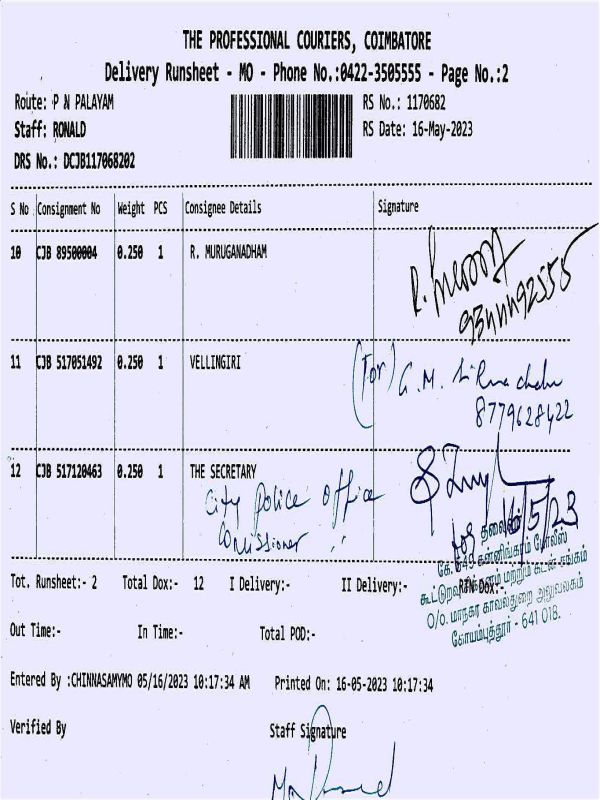 THE PROFESSIONAL COURIERS, COIMBATORE
Delivery Runsheet - MO - Phone No.:0422-3505555 - Page No.:2
Route: P N PALAYAM
RS No.: 1170682
Staff: RONALD
RS Date: 16-May-2023
DRS No.: DCJB117068202
S No Consignment No Weight PCS Consignee Details Signature
10 CJB 89500004 0.250 1 R. MURUGANADHAM
11 CJB 517051492 0.250 1 VELLINGIRI
(For) G. M.
8779628422
12 CJB 517120463 0.250 1 THE SECRETARY
City police office
Comissioner "
16/5/23
தலைவர்
கூட்டுறவு சிக்கனம் மற்றும் கடன் சங்கம்
O/o. மாநகர காவல்துறை அலுவலகம்
கோயம்புத்தூர் - 641 018.
Tot. Runsheet:- 2 Total Dox:- 12 I Delivery:- II Delivery:- RTN Dox:-
Out Time:- In Time:- Total POD:-
Entered By :CHINNASAMYMO 05/16/2023 10:17:34 AM Printed On: 16-05-2023 10:17:34
Verified By Staff Signature